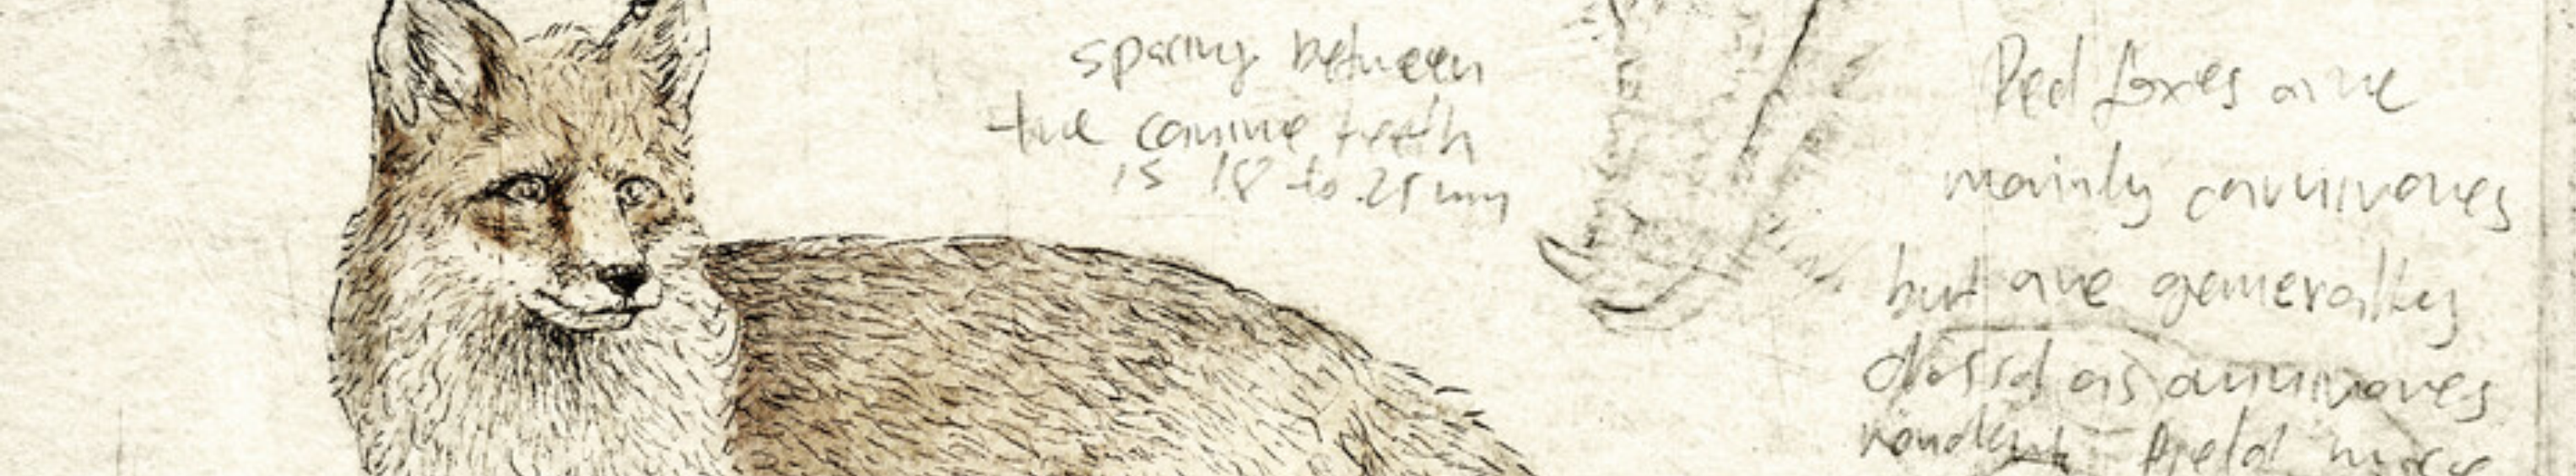 spacing between
the canine teeth
is 18 to 25 mm
Red foxes are
mainly carnivores
but are generally
classd as omnivores
field mice